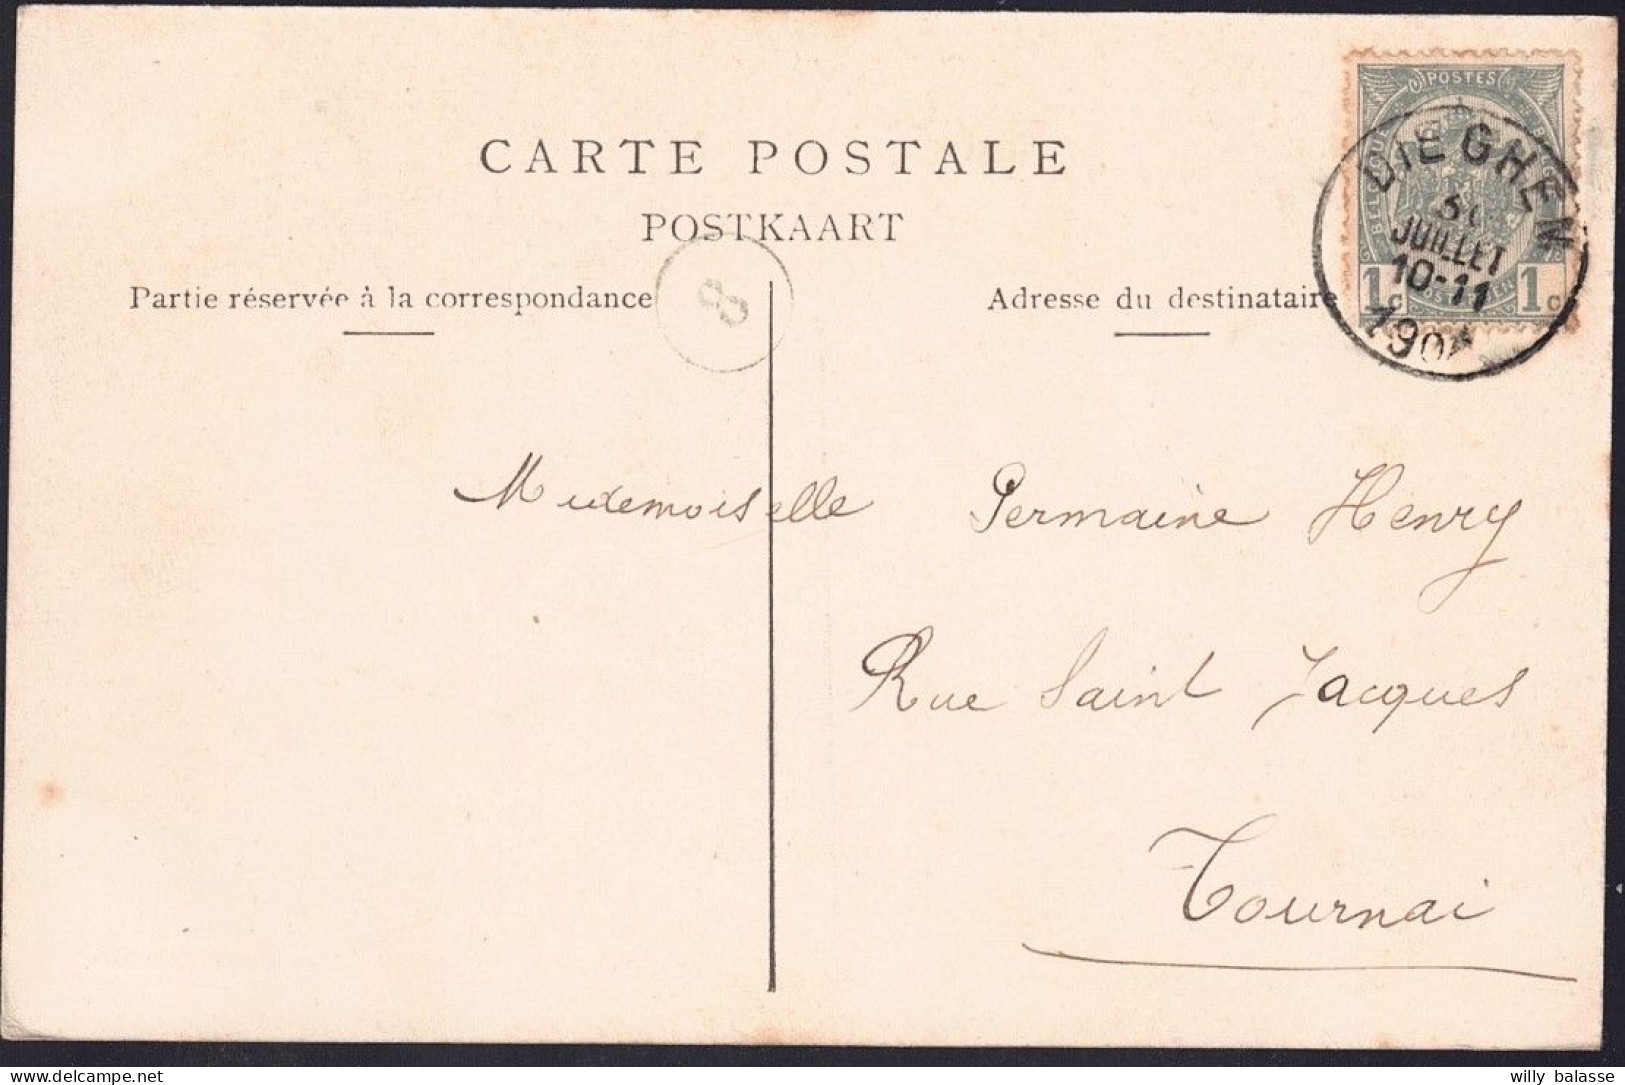 CARTE POSTALE
POSTKAART
Partie réservée à la correspondance
Adresse du destinataire
POSTES
1c 1c
DIEGHEM
JUILLET
10-11
8
Mademoiselle Germaine Henry
Rue Saint Jacques
Tournai
willy balasse